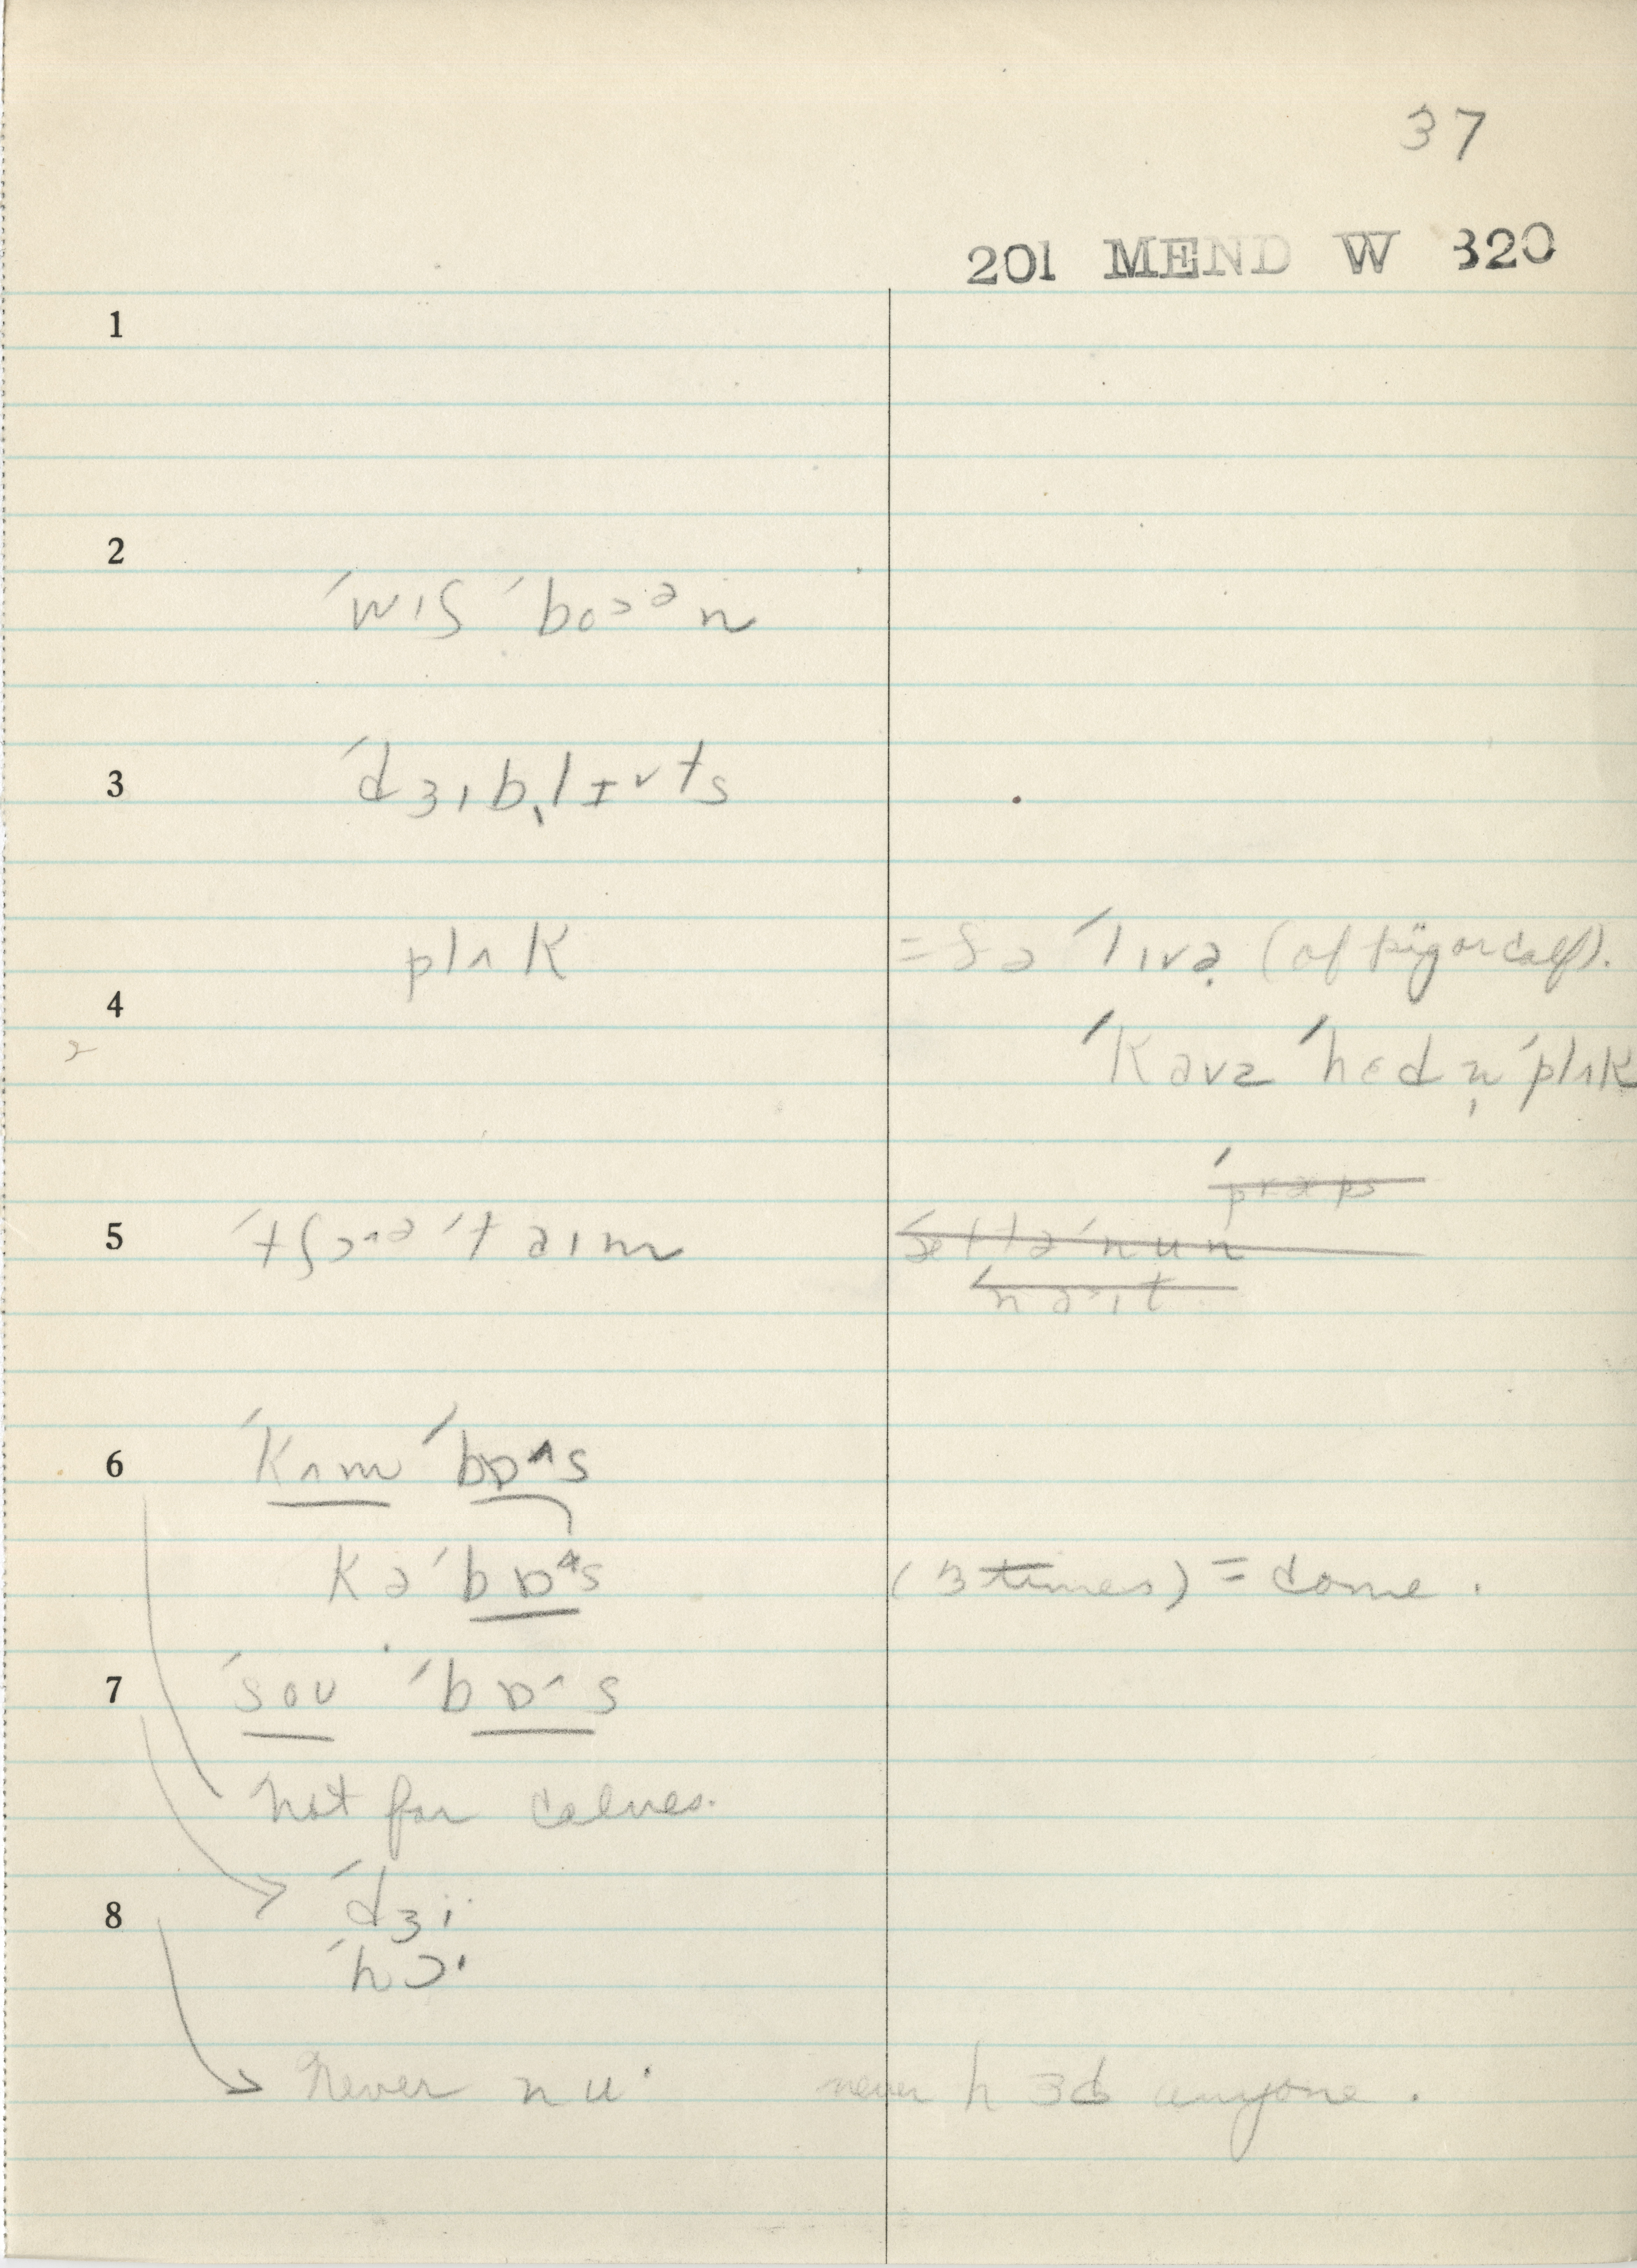 37
201 MEND W 320
1
2
ˈwɪʃ ˈboᵓᵊn
3
ˈdʒɪb̩lɪᵛts
plʌk = ðə ˈlɪvə (of pig or calf).
4
ˈkavz ˈhɛd n̩ ˈplʌk
5 ˈtʃɔᶺᵊ ˈtaɪm
6 ˈkʌm ˈbɒᶺs
kəˈbɒᶺs (3 times) = come.
7 ˈsoʊ ˈbɒᶺs
not for calves.
8 ˈdʒi
ˈhɔ·
never nu· never hɜd anyone.